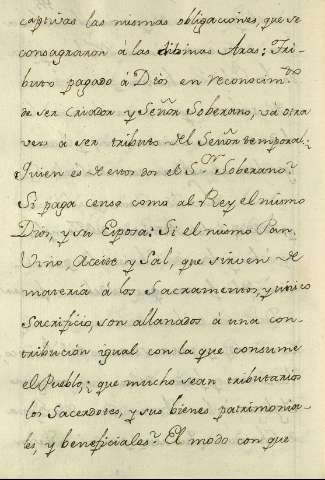 captivas las mismas obligaciones, que se
consagraron a las dibinas Aras: Tri-
buto pagado á Dios en reconocim.to
de ser Criador y Señor Soberano, vá otra
ves á ser tributo del Señor temporal:
Quien es de estos dos el S.or Soberano?
Si paga censo como al Rey, el mismo
Dios, y su Esposa: Si el mismo Pan,
Vino, Aceite y Sal, que sirven de
materia á los Sacramentos, y unico
Sacrificio, son allanados á una con-
tribución igual con la que consume
el Pueblo; que mucho sean tributarios
los Sacerdotes, y sus bienes patrimonia-
les, y beneficiales? El modo con que